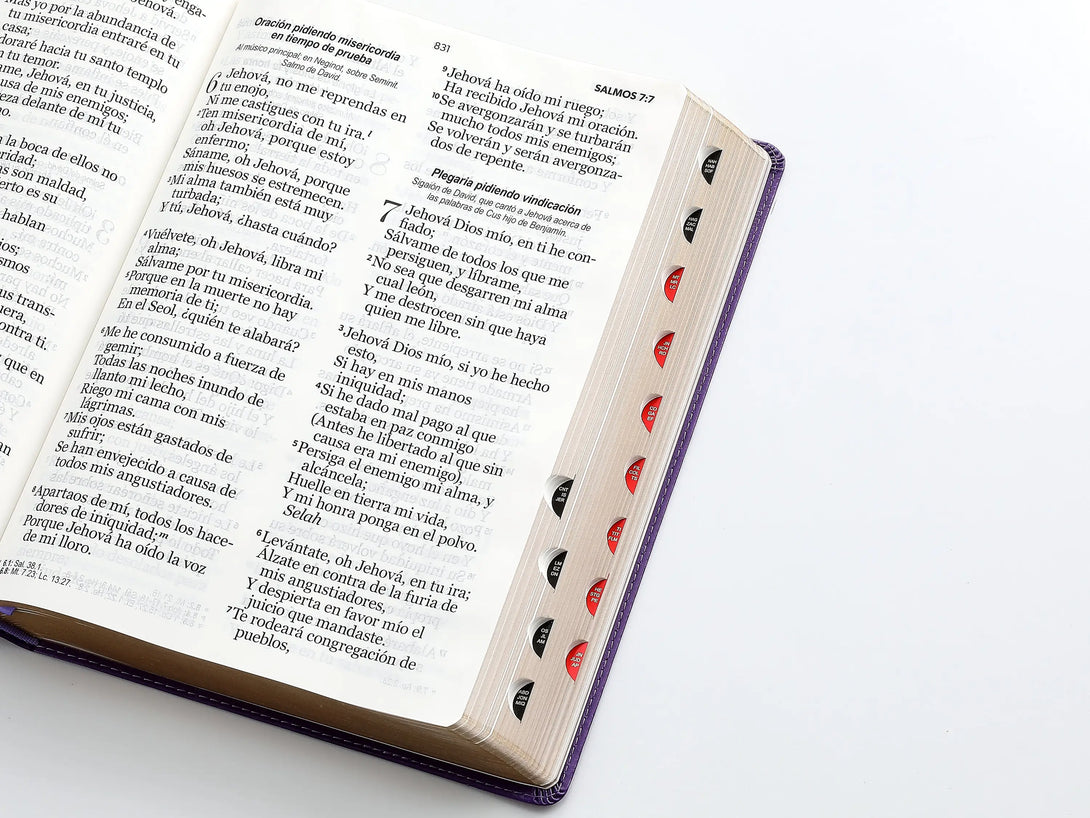 Jehová.
Mas yo por la abundancia de
tu misericordia entraré en tu
casa;
doraré hacia tu santo templo
n tu temor.
ame, Jehová, en tu justicia,
usa de mis enemigos;
eza delante de mí tu
no.
la boca de ellos no
ridad;
as son maldad,
ierto es su
hablan
ios;
smos
us trans-
uera,
ontra ti.
que en
an
Oración pidiendo misericordia
en tiempo de prueba
Al músico principal; en Neginot, sobre Seminit.
Salmo de David.
6 Jehová, no me reprendas en
tu enojo,
Ni me castigues con tu ira.
2Ten misericordia de mí,
oh Jehová, porque estoy
enfermo;
Sáname, oh Jehová, porque
mis huesos se estremecen.
3Mi alma también está muy
turbada;
Y tú, Jehová, ¿hasta cuándo?
4Vuélvete, oh Jehová, libra mi
alma;
Sálvame por tu misericordia.
5Porque en la muerte no hay
memoria de ti;
En el Seol, ¿quién te alabará?
6Me he consumido a fuerza de
gemir;
Todas las noches inundo de
llanto mi lecho,
Riego mi cama con mis
lágrimas.
7Mis ojos están gastados de
sufrir;
Se han envejecido a causa de
todos mis angustiadores.
8Apartaos de mí, todos los hace-
dores de iniquidad; m
Porque Jehová ha oído la voz
de mi lloro.
6.1: Sal. 38.1.
6.8: Mt. 7.23; Lc. 13.27.
831
SALMOS 7:7
9Jehová ha oído mi ruego;
Ha recibido Jehová mi oración.
10Se avergonzarán y se turbarán
mucho todos mis enemigos;
Se volverán y serán avergonza-
dos de repente.
Plegaria pidiendo vindicación
Sigaión de David, que cantó a Jehová acerca de
las palabras de Cus hijo de Benjamín.
7 Jehová Dios mío, en ti he con-
fiado;
Sálvame de todos los que me
persiguen, y líbrame,
2No sea que desgarren mi alma
cual león,
Y me destrocen sin que haya
quien me libre.
3Jehová Dios mío, si yo he hecho
esto,
Si hay en mis manos
iniquidad;
4Si he dado mal pago al que
estaba en paz conmigo
(Antes he libertado al que sin
causa era mi enemigo),
5Persiga el enemigo mi alma, y
alcáncela;
Huelle en tierra mi vida,
Y mi honra ponga en el polvo.
Selah
6Levántate, oh Jehová, en tu ira;
Álzate en contra de la furia de
mis angustiadores,
Y despierta en favor mío el
juicio que mandaste.
7Te rodeará congregación de
pueblos,
NAH
HAB
SOF
HAG
ZAC
MAL
MT
MR
LC
JN
HCH
RO
CO
GA
EF
FIL
COL
TS
TI
TIT
FLM
HE
STG
PE
JN
JUD
AP
CNT
IS
JER
LM
EZ
DN
OS
JL
AM
ABD
JON
MIQ